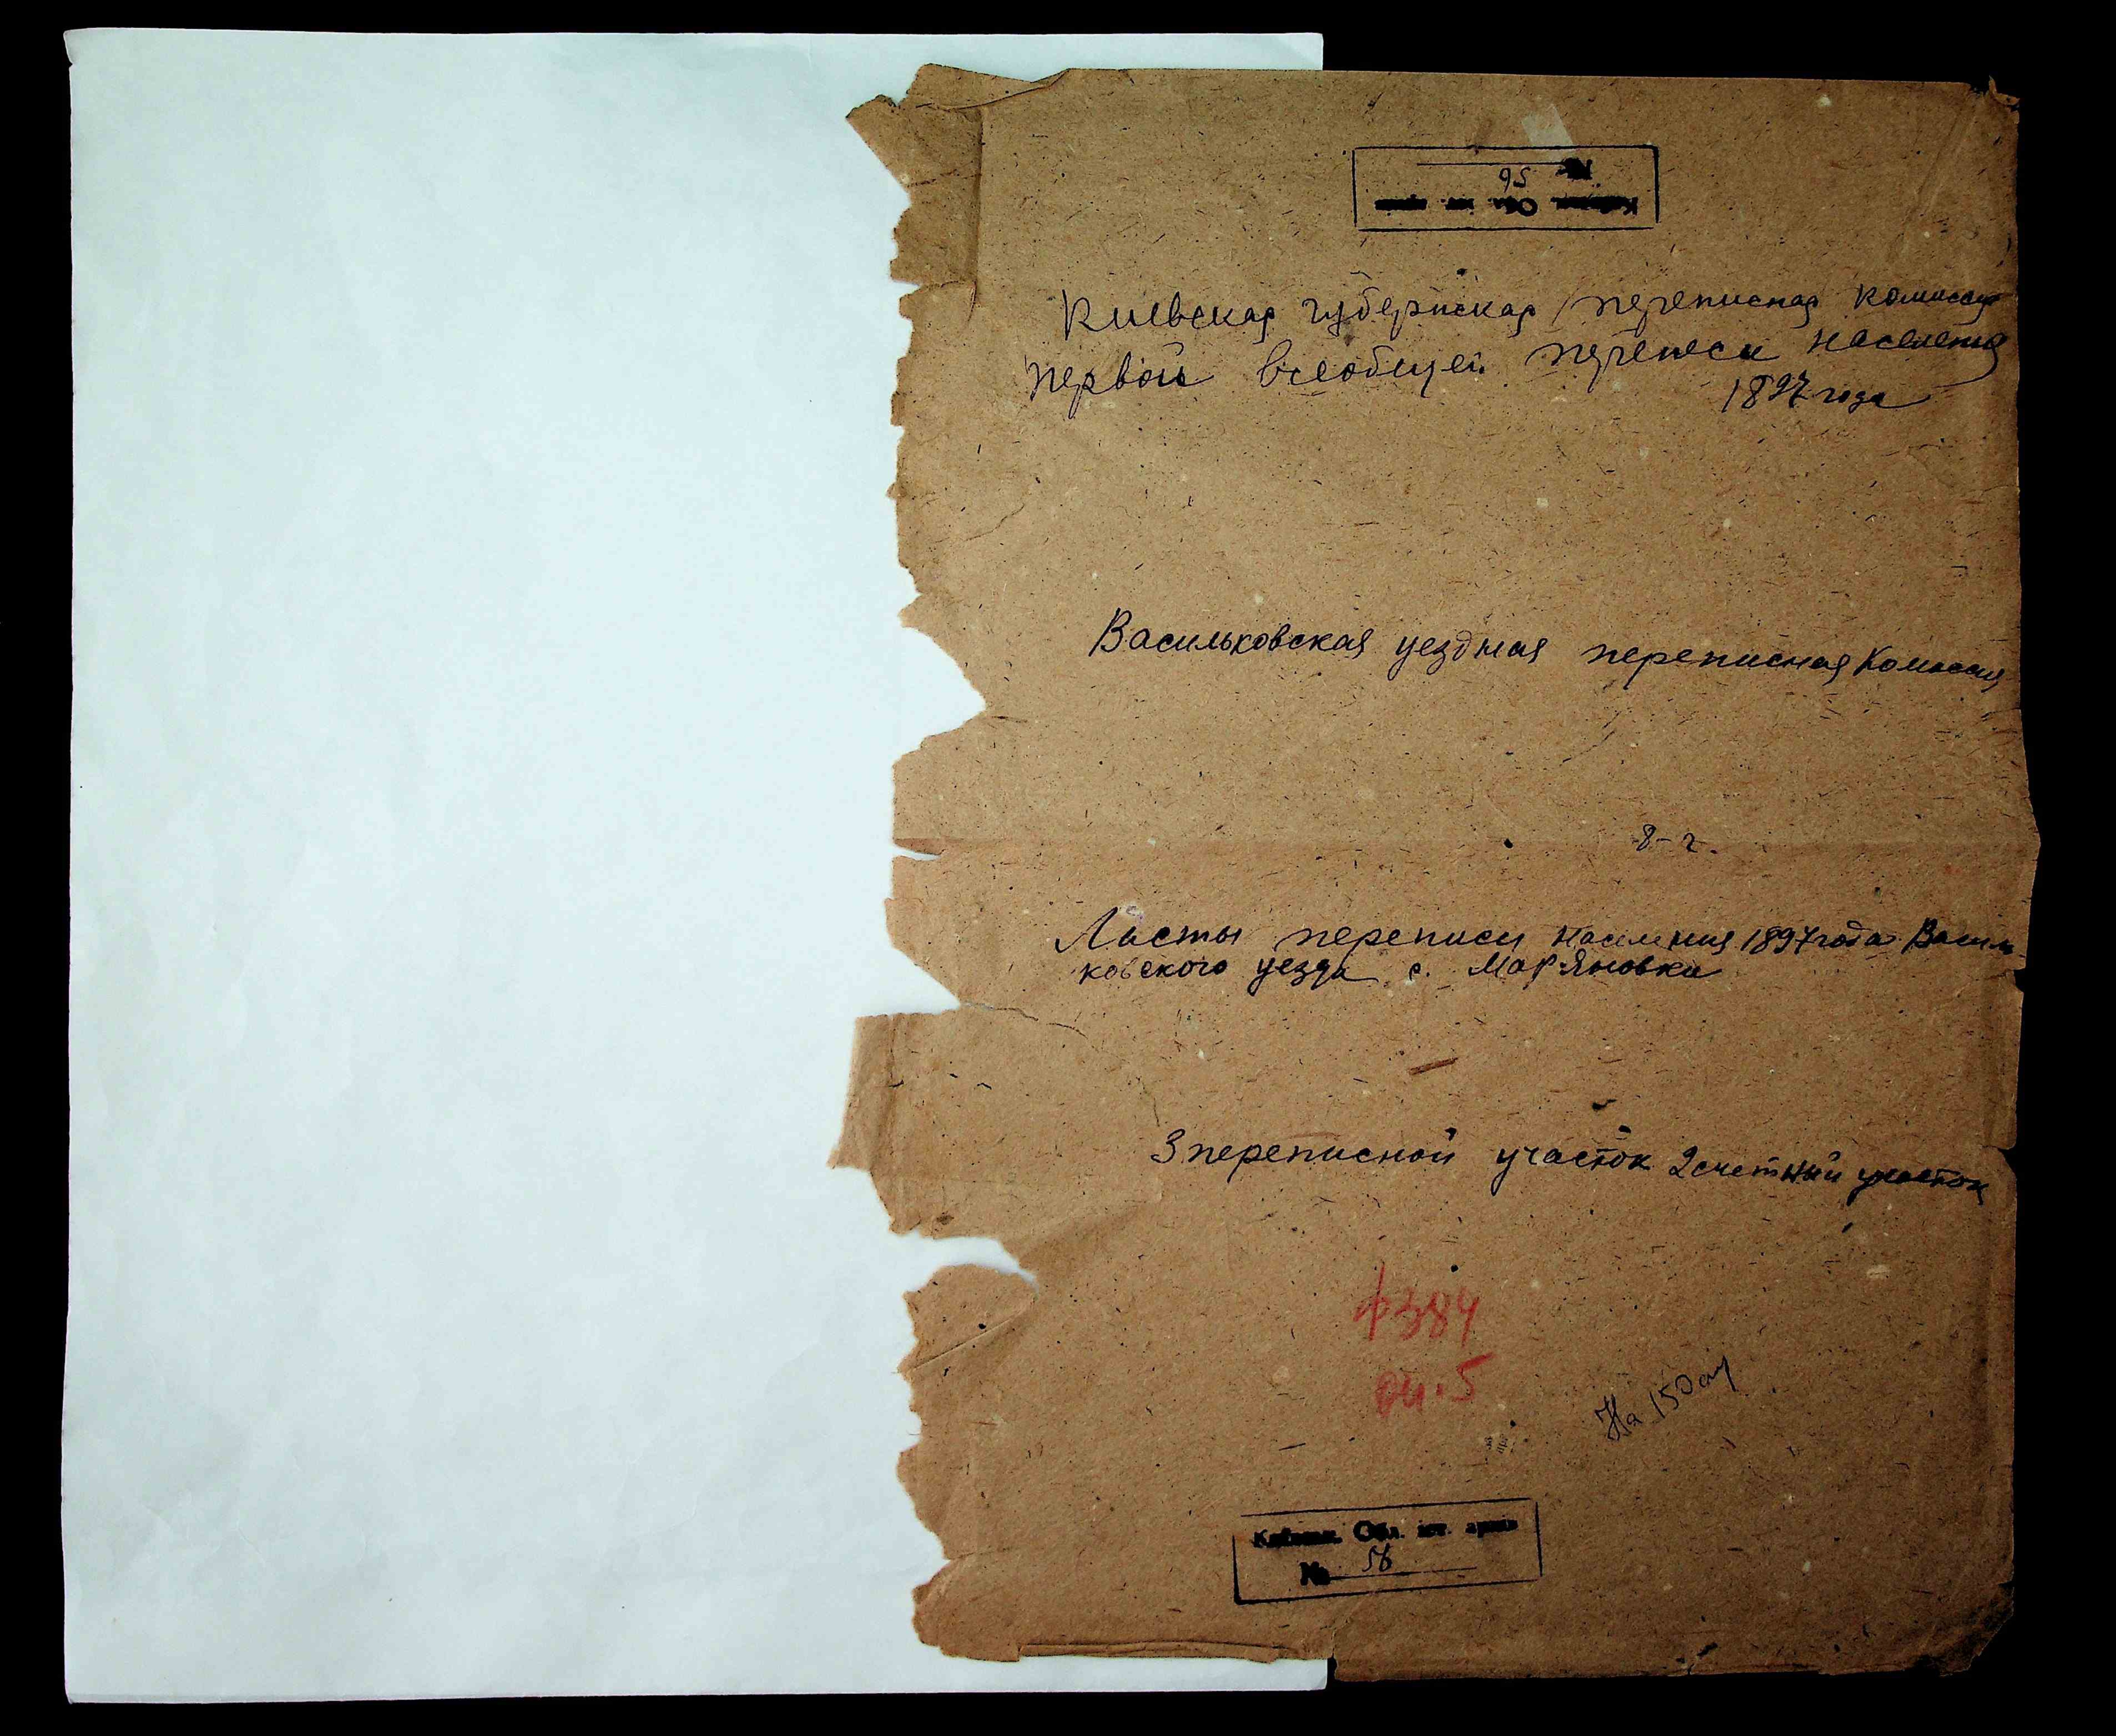 № 56
Київськ. Обл. іст. архів
Киевская губернская переписная комиссия
первой всеобщей переписи населения
1897 года
Васильковская уездная переписная комиссия
8-2.
Листы переписи населения 1897 года Василь-
ковского уезда с. Мар-Яновки
3 переписной участок 2 счетный участок
ф 384
оп. 5
На 150
Київськ. Обл. іст. архів
№ 56